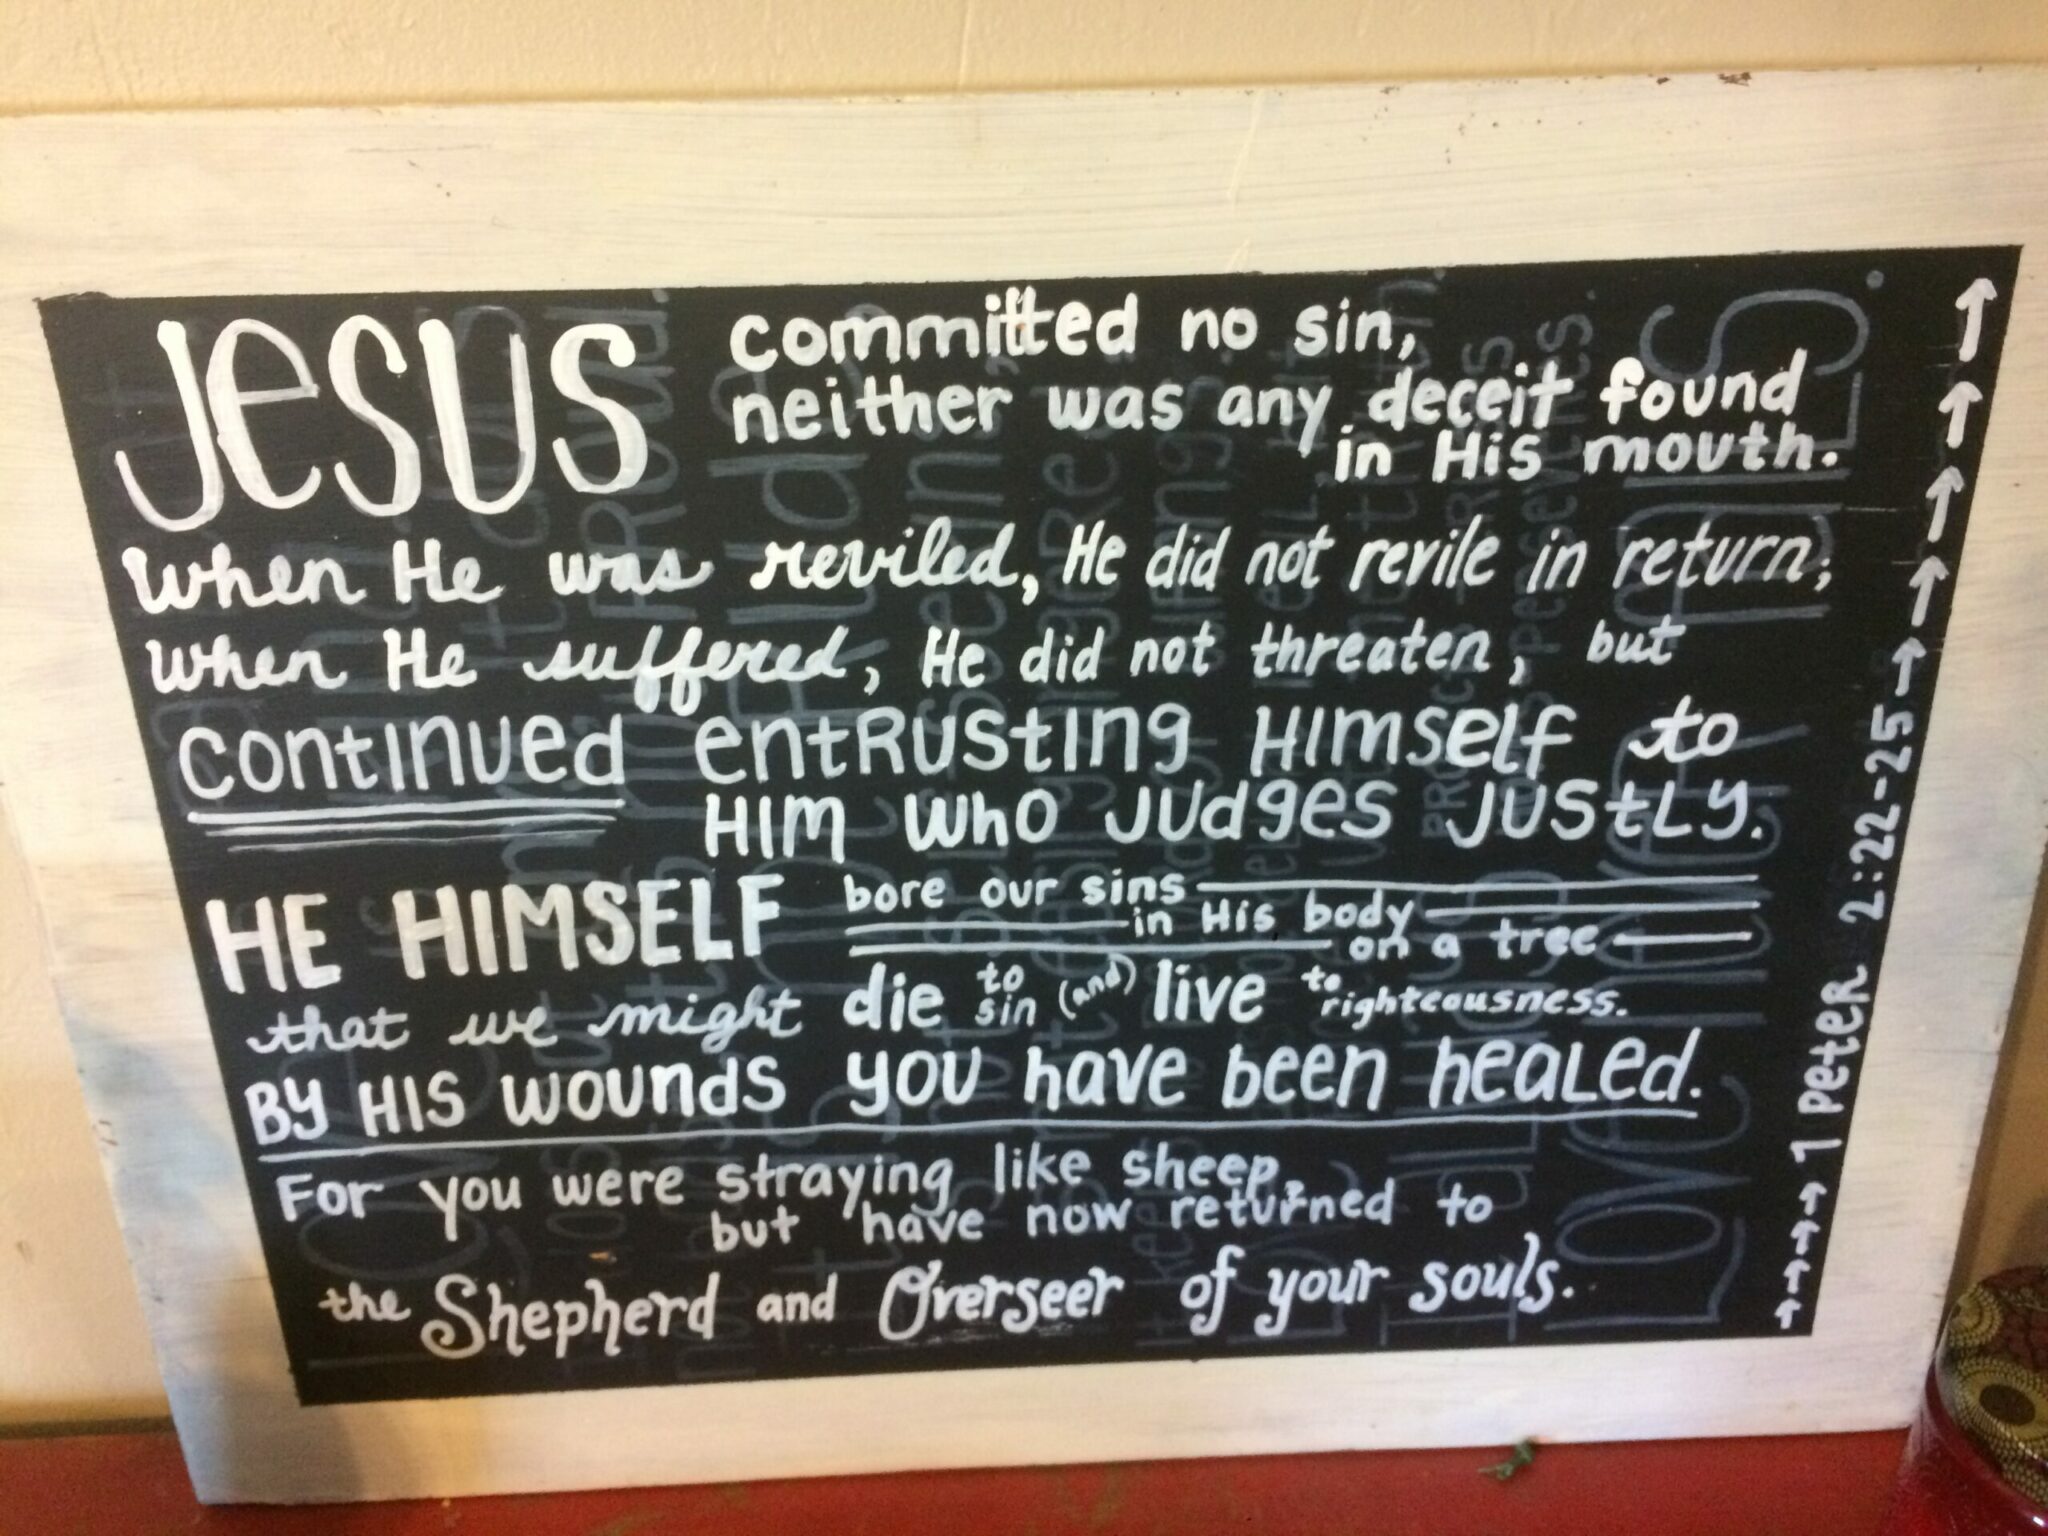 JESUS committed no sin,
neither was any deceit found
in His mouth.
When He was reviled, He did not revile in return;
When He suffered, He did not threaten, but
continued entrusting Himself to
Him who judges justly.
HE HIMSELF bore our sins
in His body
on a tree
that we might die to sin (and) live to righteousness.
By His wounds you have been healed.
For you were straying like sheep,
but have now returned to
the Shepherd and Overseer of your souls.
1 Peter 2:22-25
Love never fails.